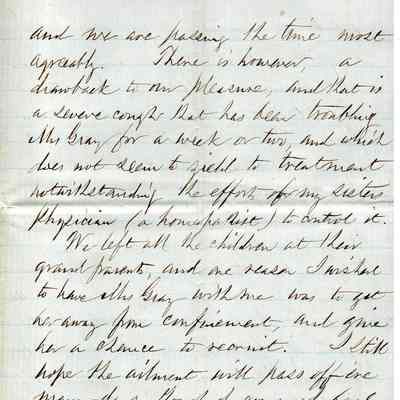 and we are passing the time most
agreeably. There is however, a
drawback to our pleasure, and that is
a severe cough that has been troubling
Mrs Gray for a week or two, and which
does not seem to yield to treatment
notwithstanding the efforts of my sisters
Physician (a homeopathist) to control it.
We left all the children at their
grand parents, and one reason I wished
to have Mrs Gray with me was to get
her away from confinement, and give
her a chance to recruit. I still
hope the ailment will pass off ere
many days